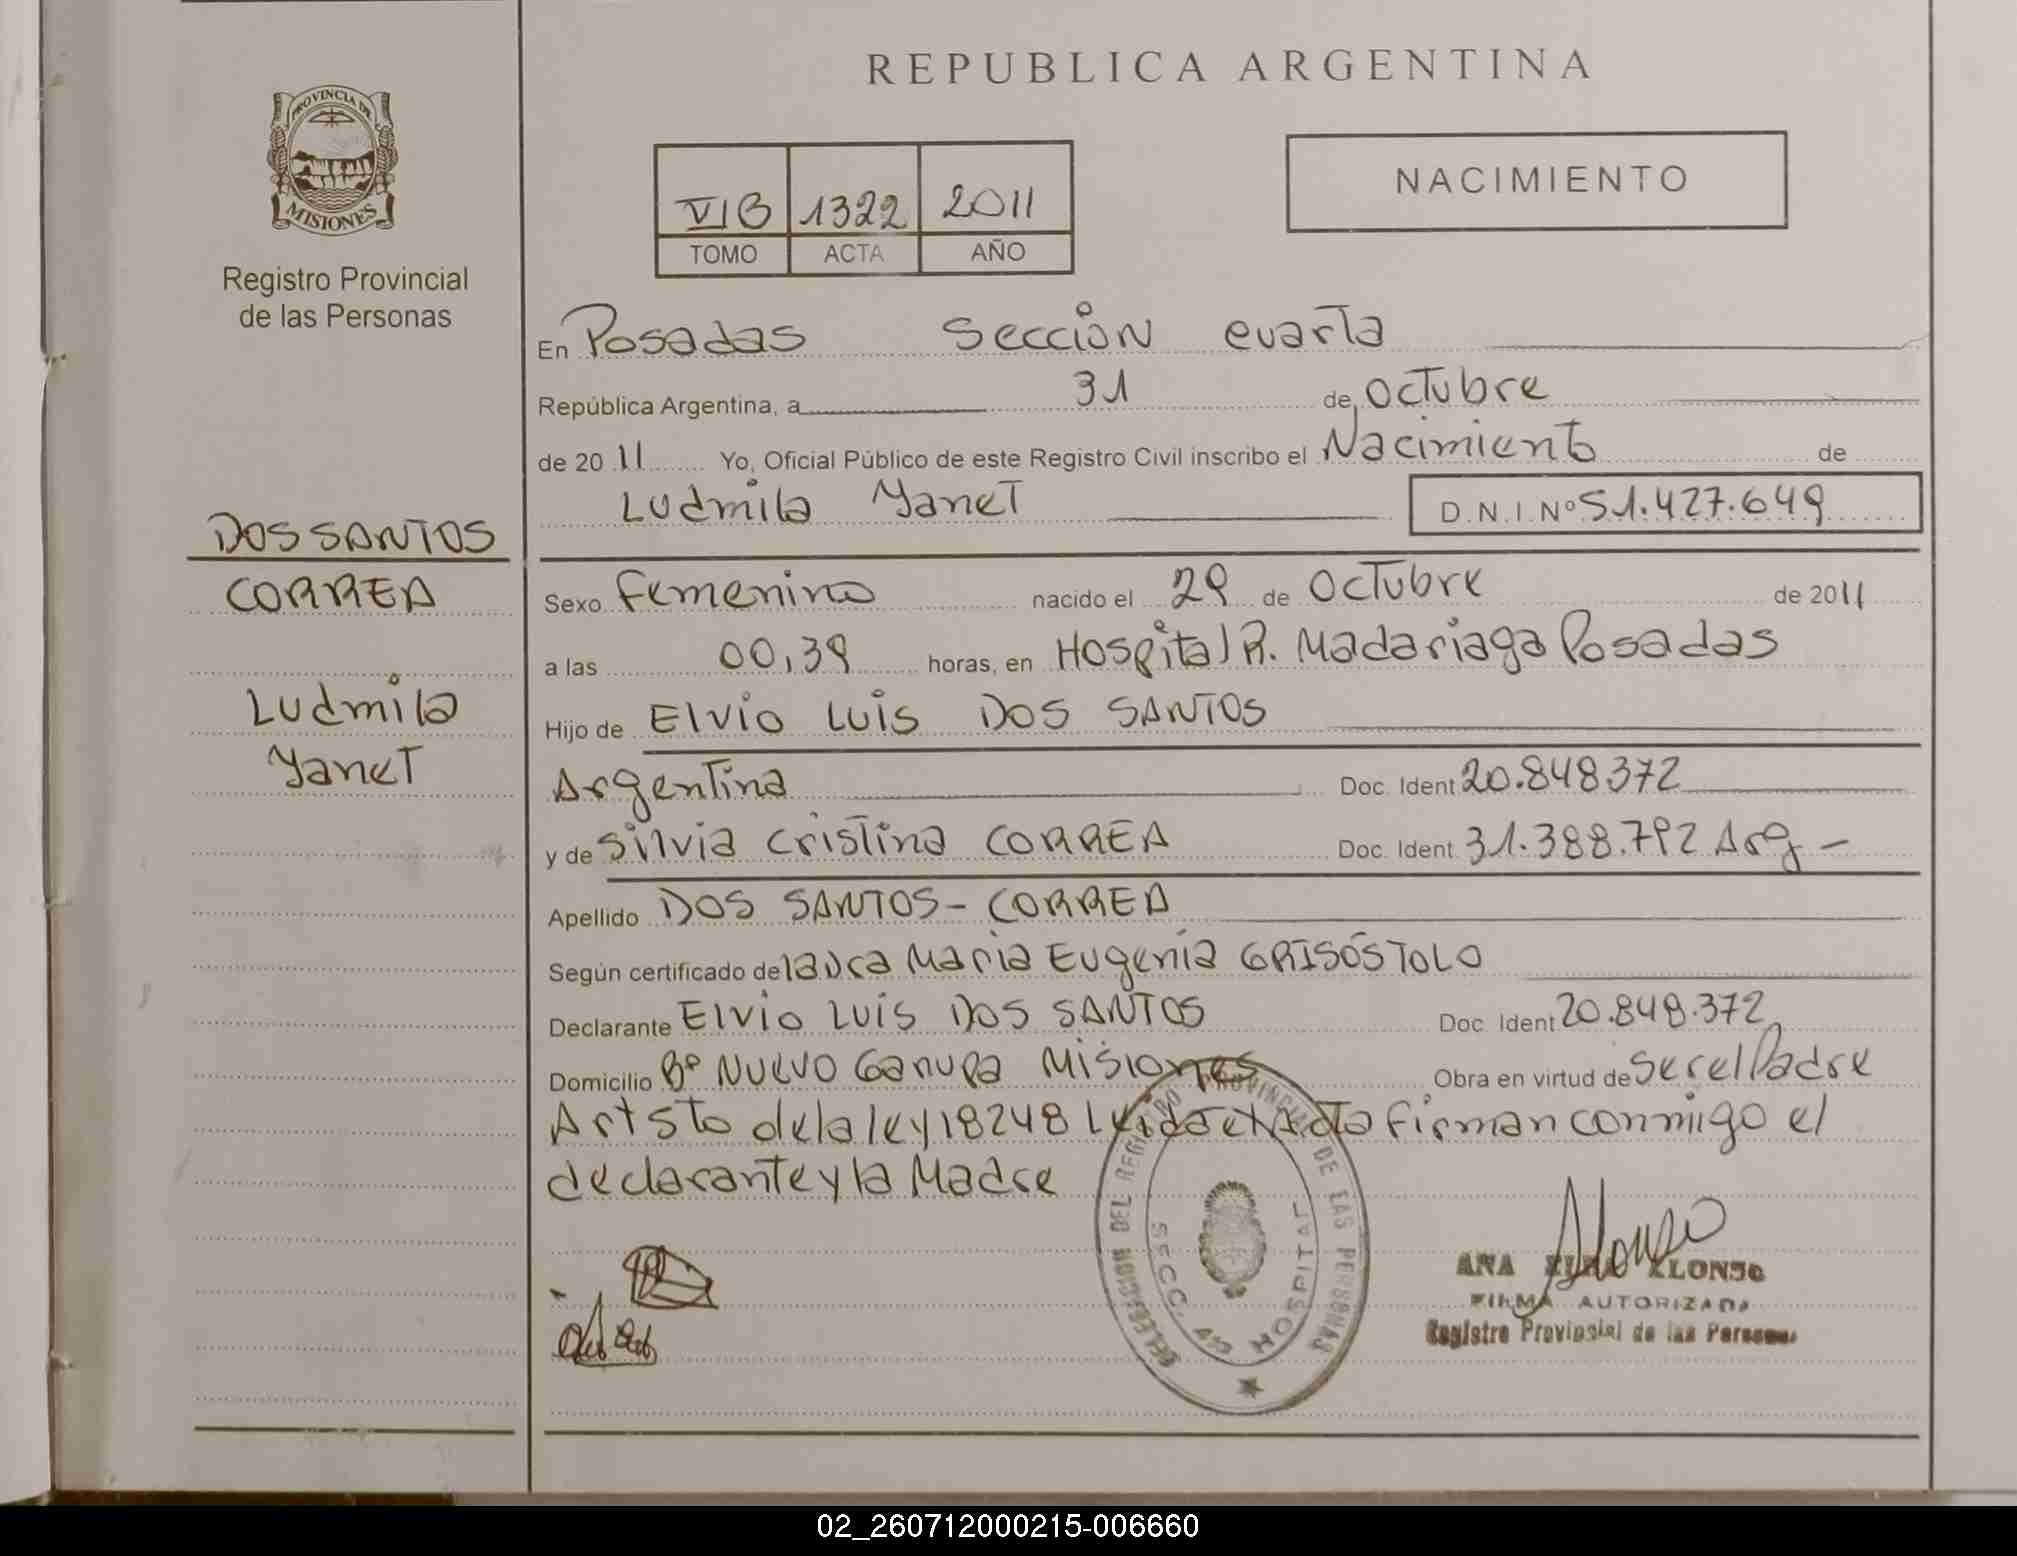 REPUBLICA ARGENTINA
PROVINCIA DE
MISIONES
Registro Provincial
de las Personas
VIB 1322 2011
TOMO ACTA AÑO
NACIMIENTO
En Posadas Sección cuarta
República Argentina, a 31 de Octubre
de 2011 Yo, Oficial Público de este Registro Civil inscribo el Nacimiento de
Ludmila Yanet D.N.I.Nº 51.427.649
DOS SANTOS
CORREA
Ludmila
Yanet
Sexo Femenino nacido el 29 de Octubre de 2011
a las 00,39 horas, en Hospital R. Madariaga Posadas
Hijo de Elvio Luis DOS SANTOS
Argentina Doc. Ident 20.848.372
y de Silvia Cristina CORREA Doc. Ident. 31.388.792 Arg -
Apellido DOS SANTOS - CORREA
Según certificado de laura Maria Eugenia GRISÓSTOLO
Declarante Elvio Luis DOS SANTOS Doc. Ident 20.848.372
Domicilio Bº Nuevo Garupa Misiones Obra en virtud de ser el Padre
Art 5to de la ley 18248 Leida el Acta firman conmigo el
declarante y la Madre
DELEGACION DEL REGISTRO PROVINCIAL DE LAS PERSONAS
SECC. 4ta HOSPITAL
Alonso
ANA ALONSO
FIRMA AUTORIZADA
Registro Provincial de las Personas
02_260712000215-006660